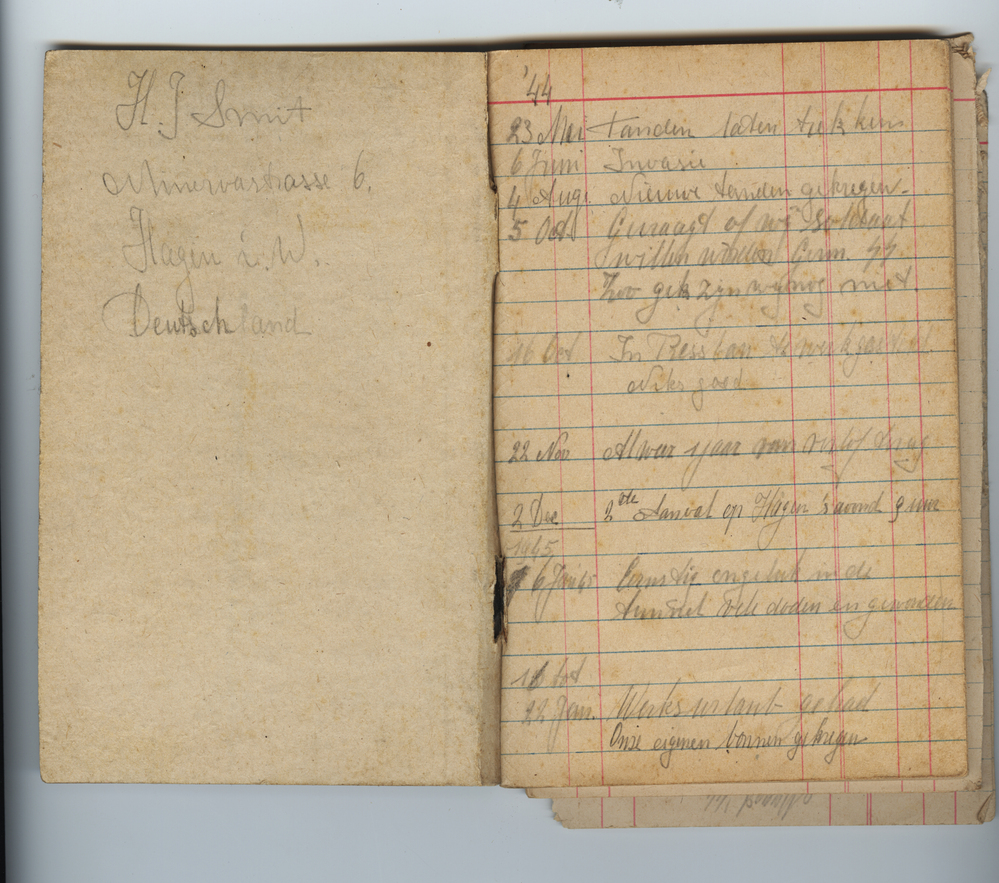 H. J Smit
Minervastrasse 6.
Hagen i. W.
Deutschland
'44
23 Mei Tanden laten trekken
6 Juni Invasie
4 Aug. Nieuwe tanden gekregen.
5 Oct. Gevraagd of wij soldaat
willen worden
Zoo gek zijn wij nog niet.
16 Oct In te werk gesteld
Niks goed
22 Nov Al weer 1 jaar van verlof terug
2 Dec 2de Aanval op Hagen 's avond 9 uur
1945
6 Jan 45 Ernstig ongeluk in de
tunnel vele doden en gewonden
16 tot
22 Jan. Werksurlaub gehad
Onze eigenen bonnen gekregen